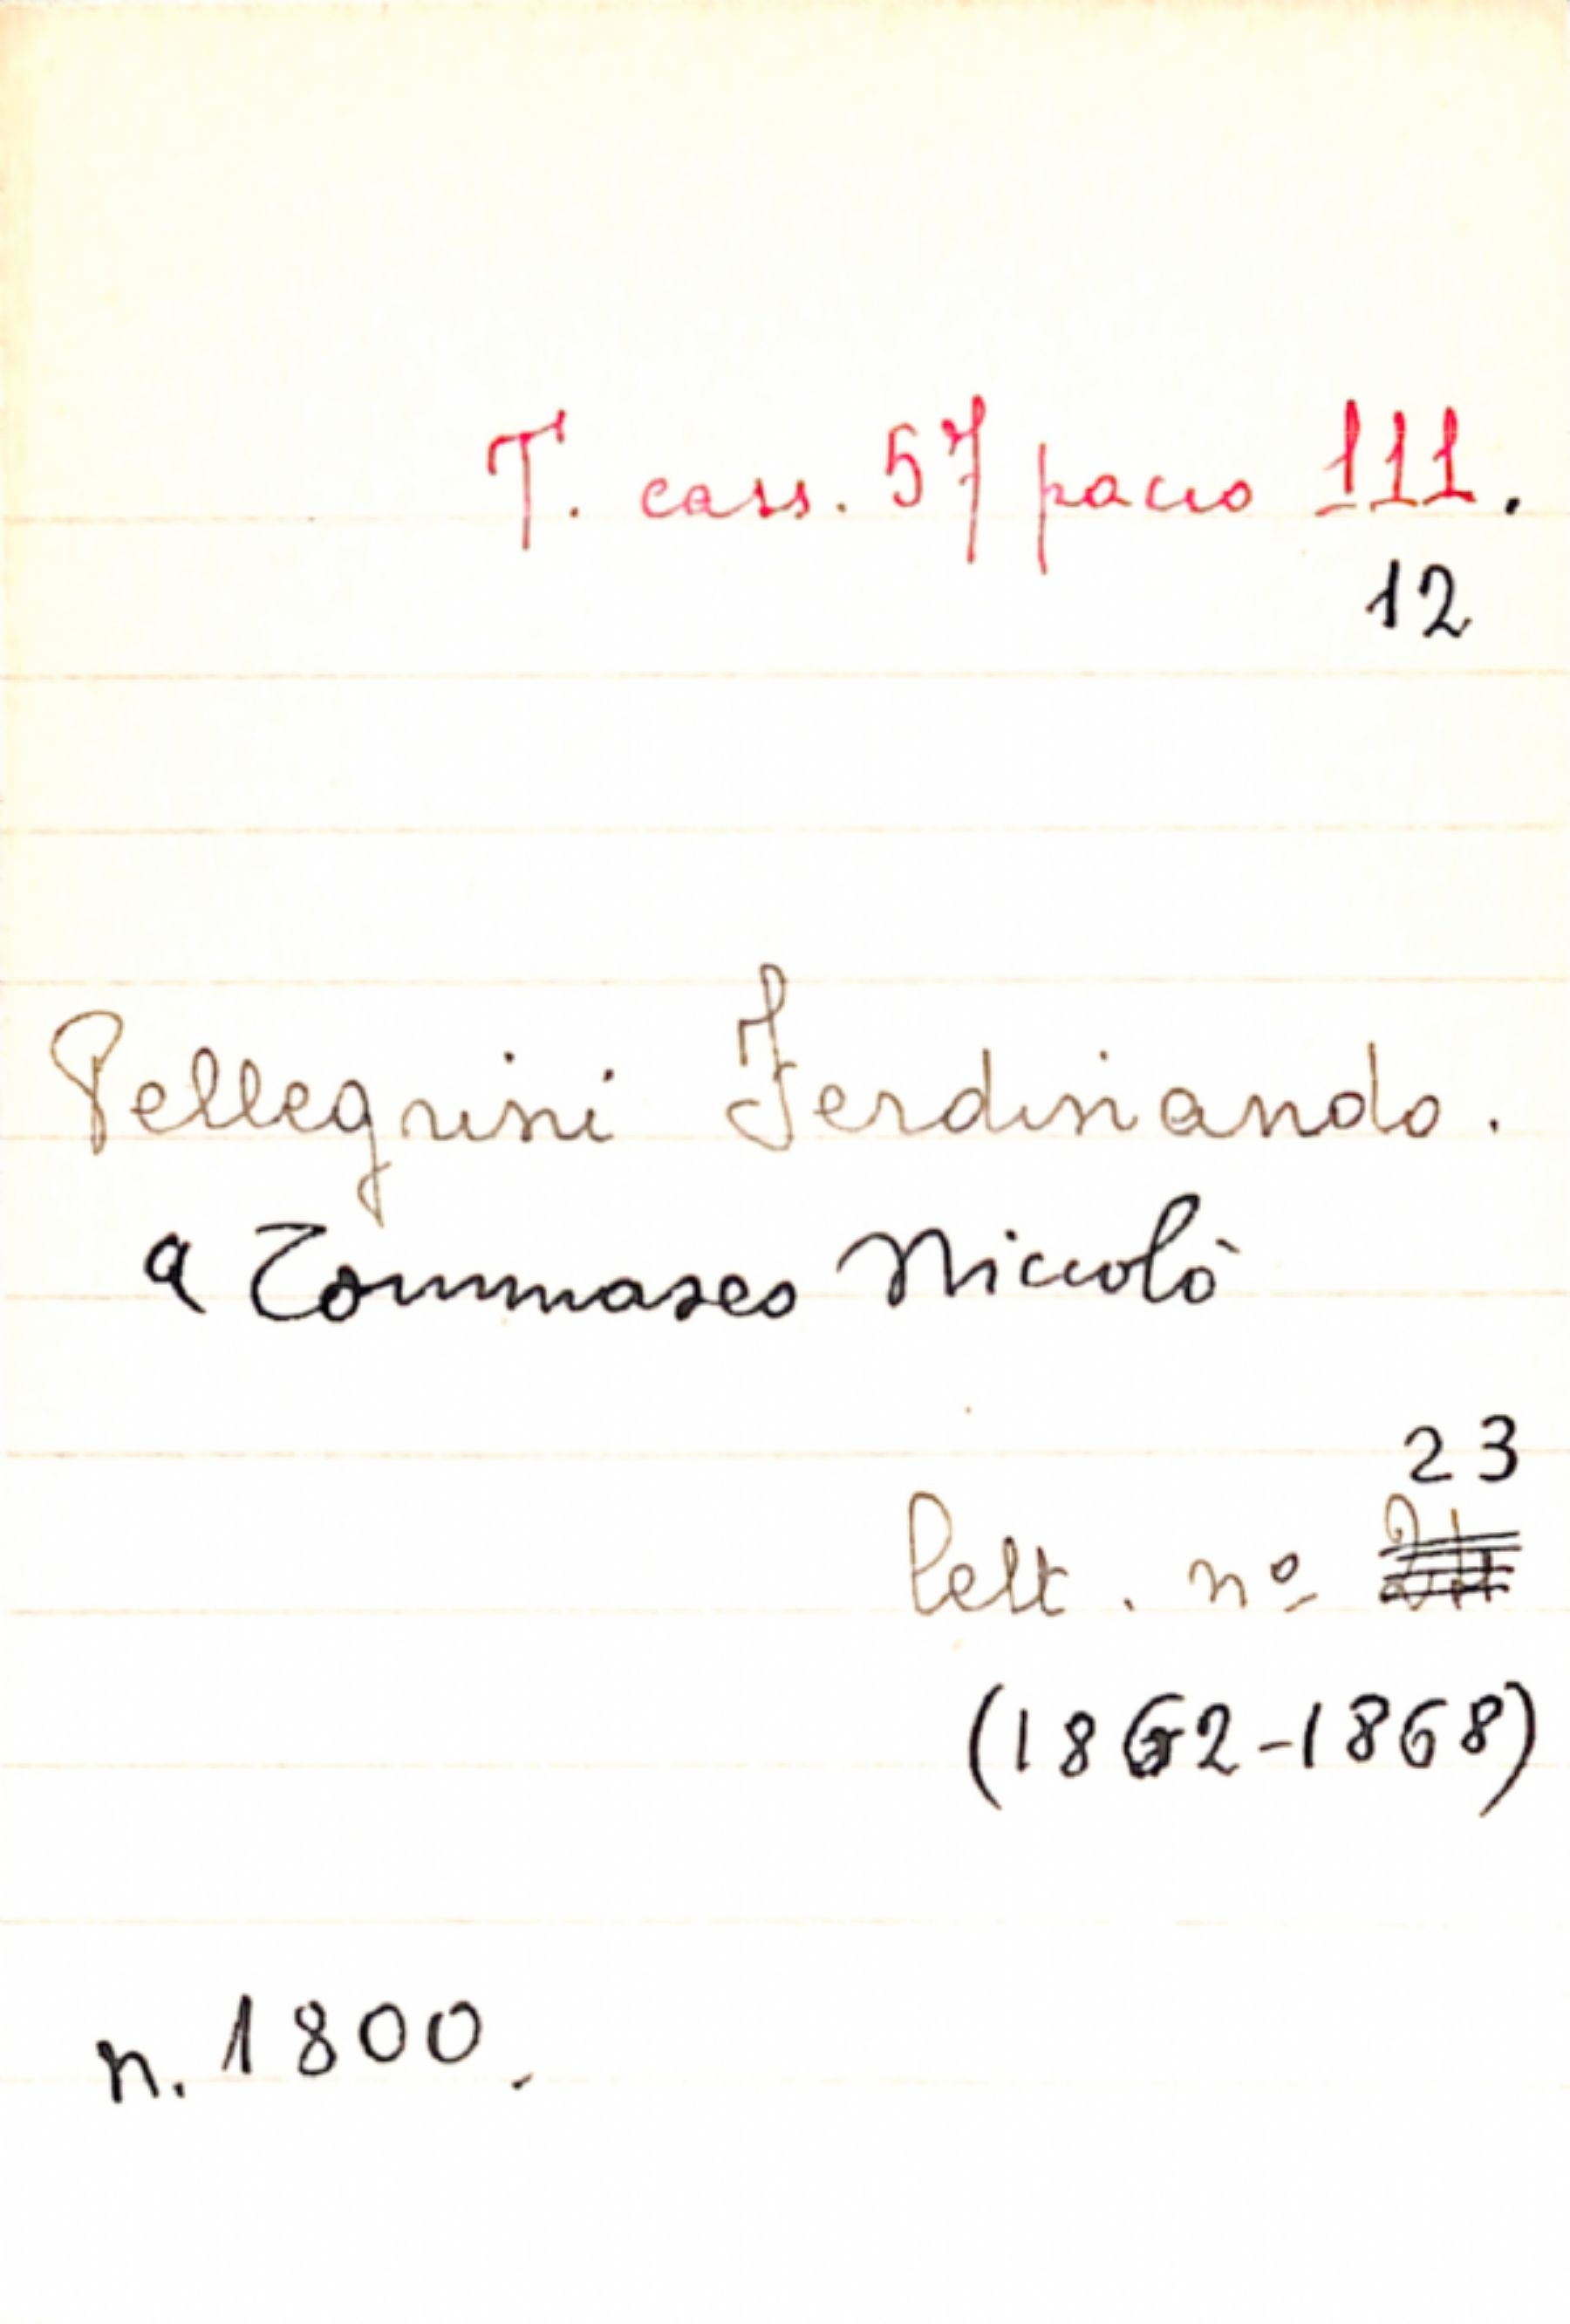 T. cass. 57 pacco 111.
12
Pellegrini Ferdinando.
a Tommaseo Niccolò
23
Lett. nº
(1862-1868)
n. 1800.